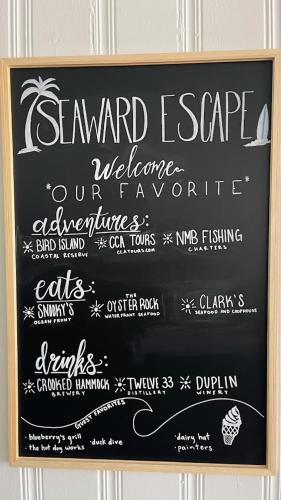 SEAWARD ESCAPE
Welcome
"OUR FAVORITE"
adventures:
BIRD ISLAND
COASTAL RESERVE
CCA TOURS
CCATOURS.COM
NMB FISHING
CHARTERS
eats:
SNOOKY'S
OCEAN FRONT
THE
OYSTER ROCK
WATERFRONT SEAFOOD
CLARK'S
SEAFOOD AND CHOPHOUSE
drinks:
CROOKED HAMMOCK
BREWERY
TWELVE 33
DISTILLERY
DUPLIN
WINERY
GUEST FAVORITES
· blueberry's grill
· the hot dog works
· duck dive
· dairy hut
· painters